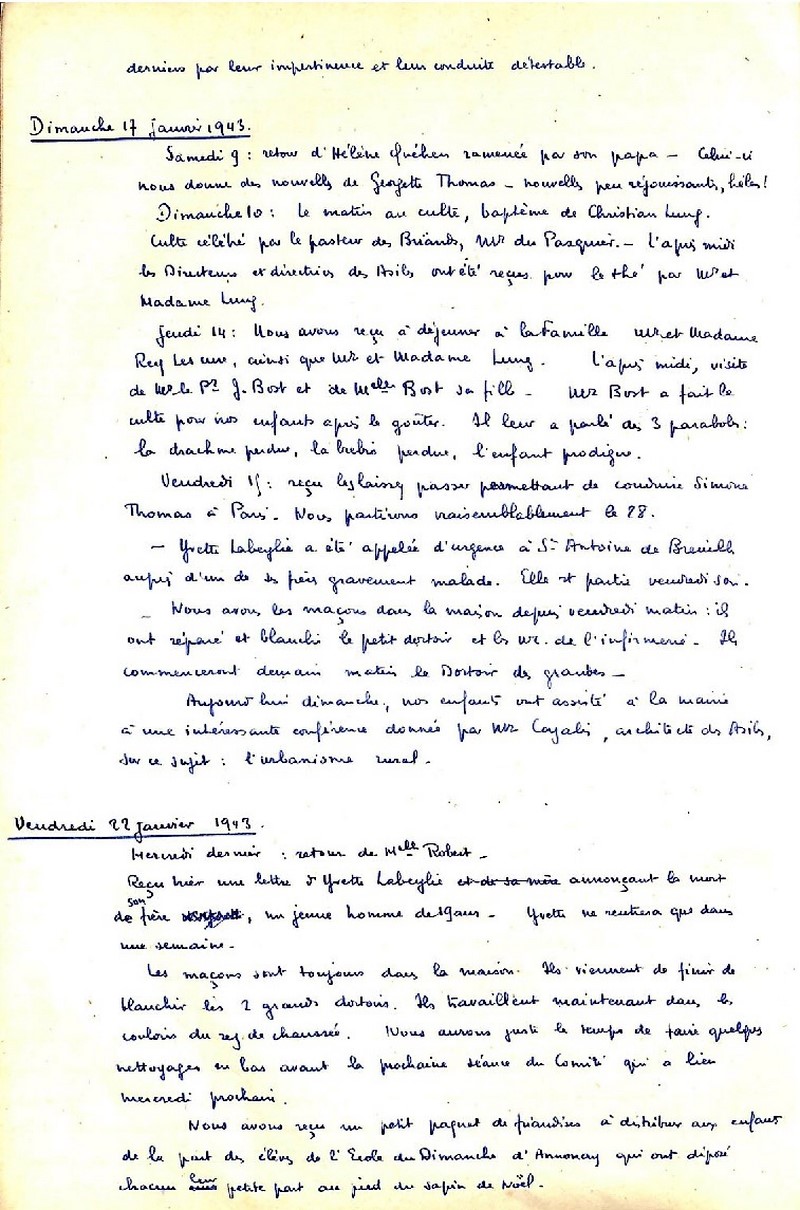 derniers par leur impertinence et leur conduite détestable.
Dimanche 17 janvier 1943.
Samedi 9 : retour d'Hélène Quéhen ramenée par son papa - Celui-ci
nous donne des nouvelles de Georgette Thomas - nouvelles peu réjouissantes, hélas !
Dimanche 10 : Le matin au culte, baptême de Christian Lung.
Culte célébré par le pasteur des Briands, Mr du Pasquier. - L'après midi
les Directeurs et directrices des Asiles ont été reçus pour le thé par Mr et
Madame Lung.
Jeudi 14 : Nous avons reçu à déjeuner à la Famille Mr et Madame
Rey Lescure, ainsi que Mr et Madame Lung. L'après midi, visite
de Mr le Pr J. Bost et de Melle Bost sa fille - Mr Bost a fait le
culte pour nos enfants après le goûter. Il leur a parlé des 3 paraboles :
la drachme perdue, la brebis perdue, l'enfant prodigue.
Vendredi 15 : reçu les laissez passer permettant de conduire Simone
Thomas à Paris - Nous partirons vraisemblablement le 28.
- Yvette Labeylie a été appelée d'urgence à St Antoine de Breuilh
auprès d'un de ses frères gravement malade. Elle est partie vendredi soir.
- Nous avons les maçons dans la maison depuis vendredi matin : ils
ont réparé et blanchi le petit dortoir et les wc. de l'infirmerie - Ils
commenceront demain matin le Dortoir des grandes -
Aujourd'hui dimanche, nos enfants ont assisté à la mairie
à une intéressante conférence donnée par Mr Cayalis, architecte des Asiles,
sur ce sujet : l'urbanisme rural -
Vendredi 22 janvier 1943.
Mercredi dernier : retour de Melle Robert -
Reçu hier une lettre d'Yvette Labeylie et de sa mère annonçant la mort
de son frère, un jeune homme de 19 ans - Yvette ne rentrera que dans
une semaine -
Les maçons sont toujours dans la maison. Ils viennent de finir de
blanchir les 2 grands dortoirs. Ils travaillent maintenant dans les
couloirs du rez de chaussée. Nous aurons juste le temps de faire quelques
nettoyages en bas avant la prochaine séance du Comité qui a lieu
mercredi prochain.
Nous avons reçu un petit paquet de friandises à distribuer aux enfants
de la part des élèves de l'Ecole du Dimanche d'Annonay qui ont déposé
chacun leur petite part au pied du sapin de Noël -